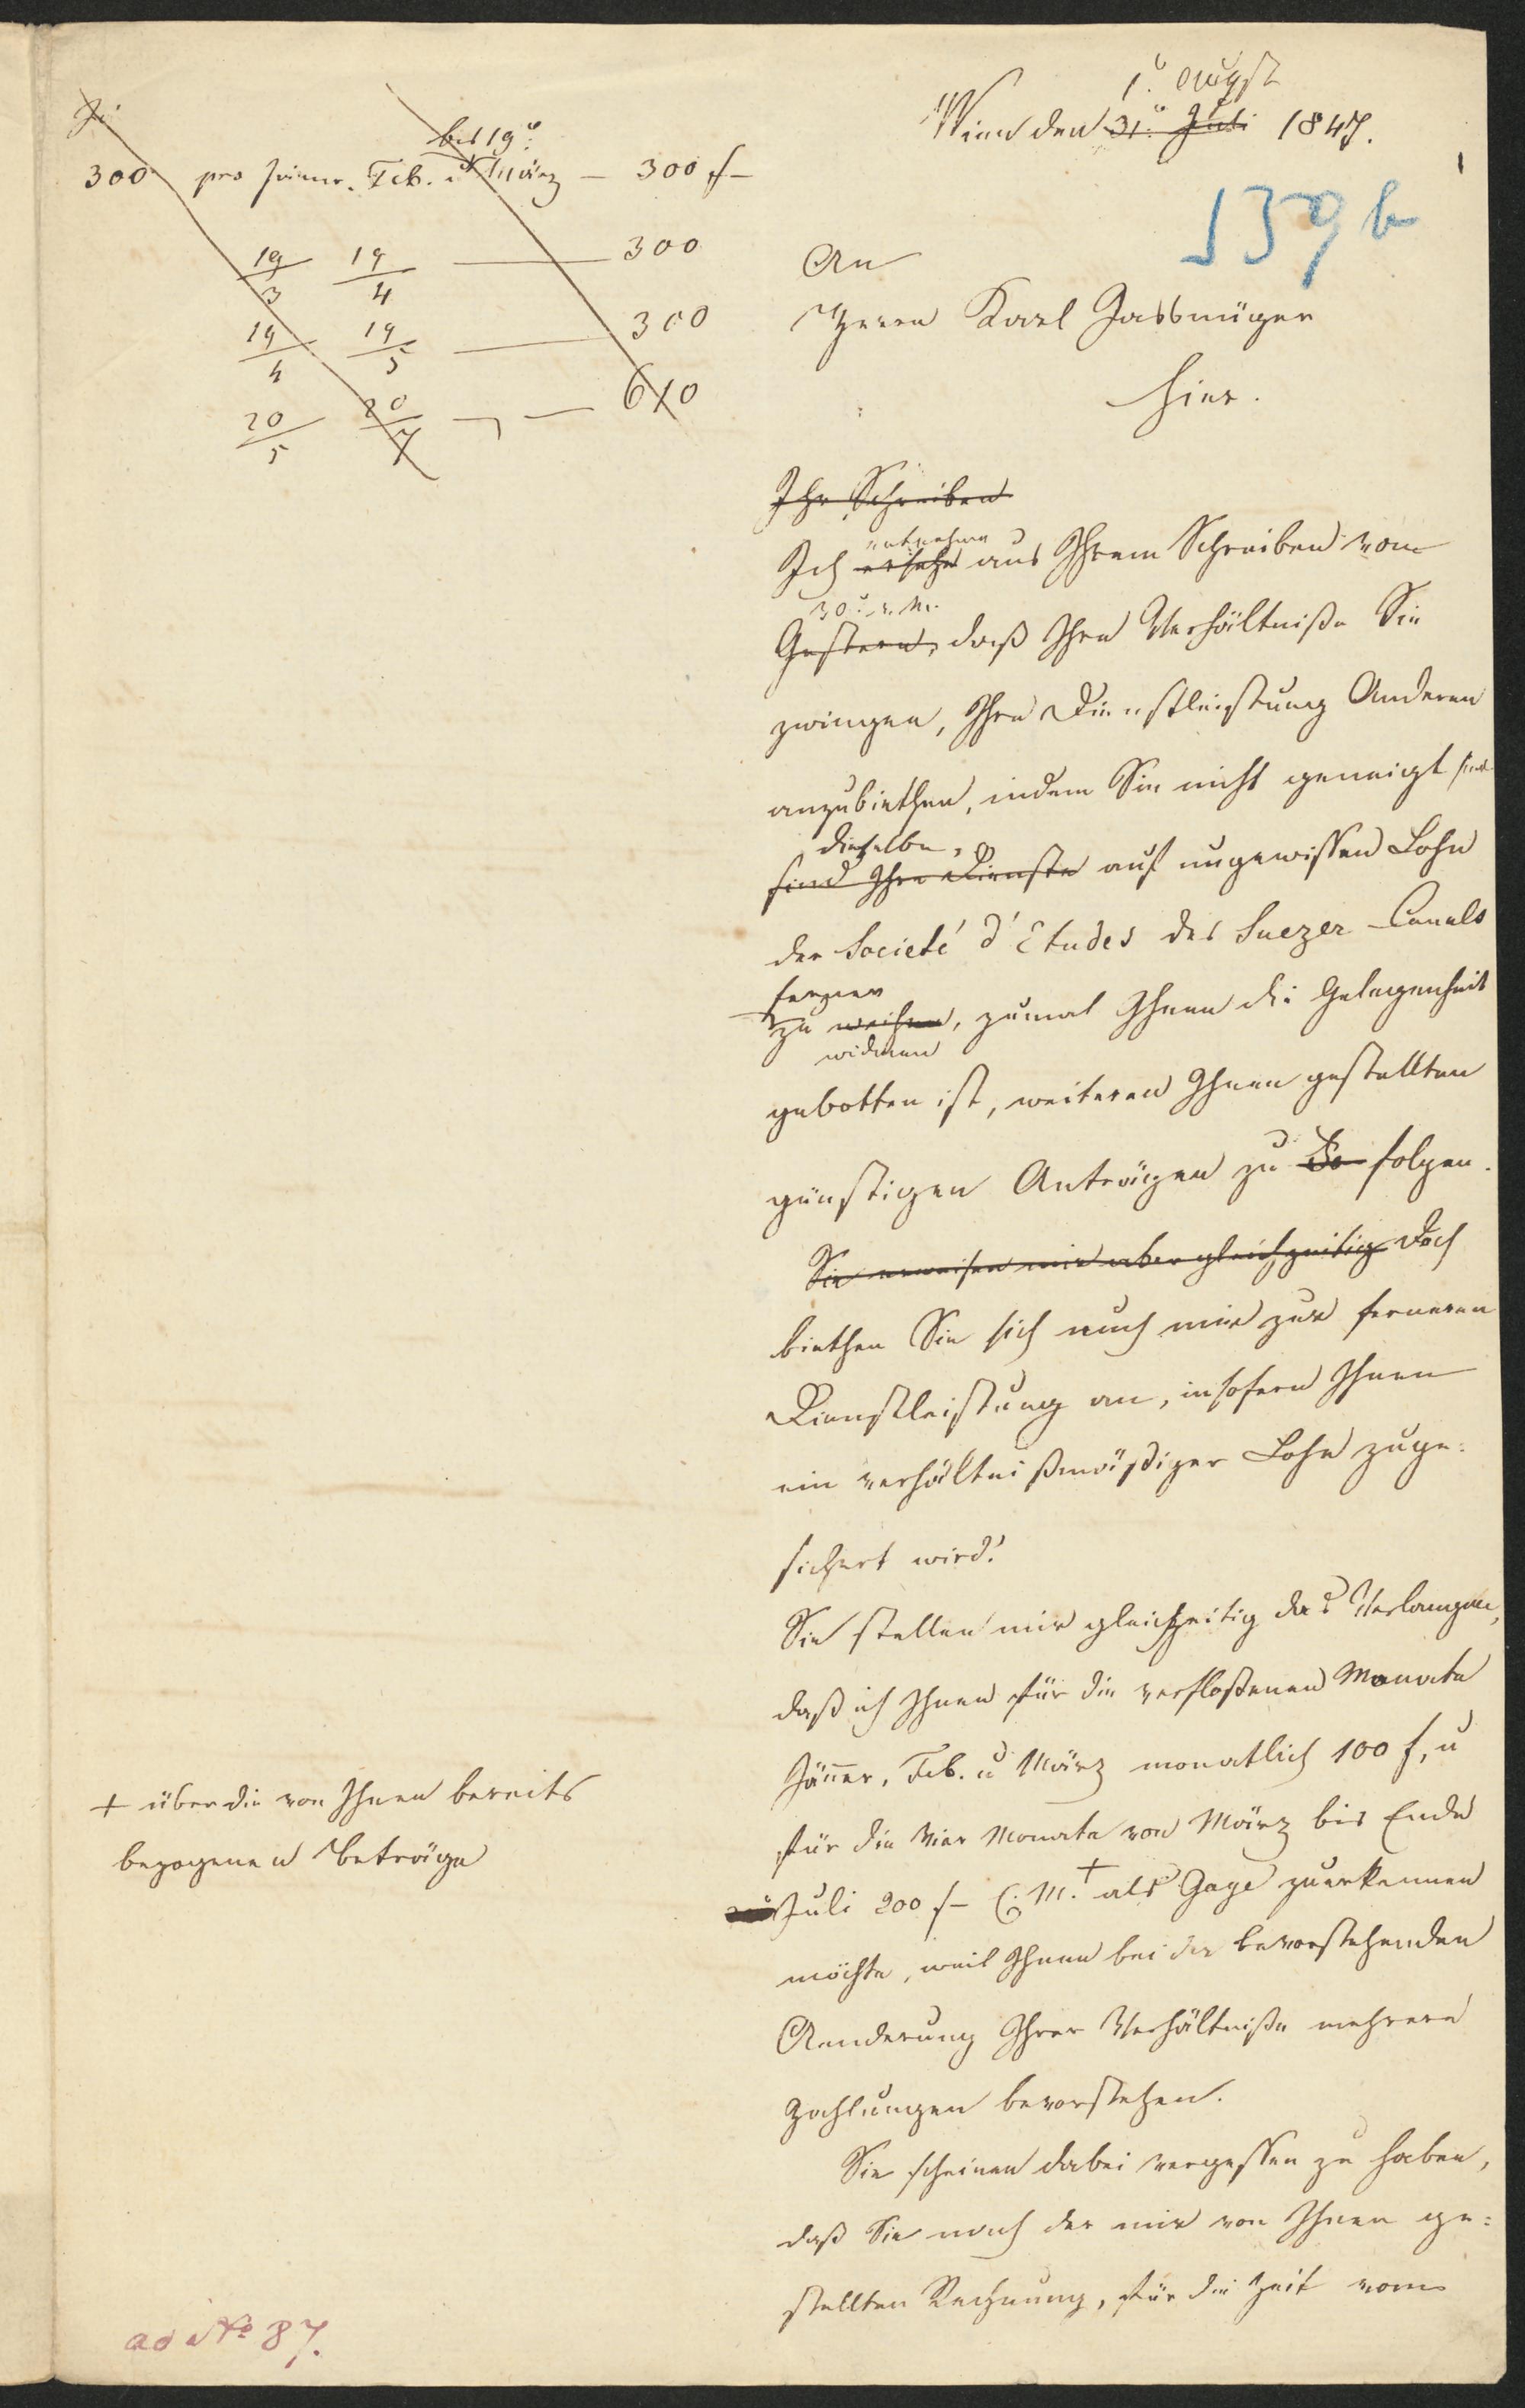 1t August
Wien den 31t Juli 1847.
1
139 b
bis 19t
300 pro Jänner. Feb. u März — 300 f—
19/3 19/4 — 300
19/4 19/5 — 300
20/5 20/7 — 610
An
Herrn Karl Jassnüger
hier.
Ihr Schreiben
entnehme
Ich ersehe aus Ihrem Schreiben vom
30t v. M.
Gestern, daß Ihre Verhältniße Sie
zwingen, Ihre Dienstleistung Anderen
anzubiethen, indem Sie nicht geneigt sind
dieselbe,
sind Ihre Dienste auf ungewissen Lohn
der Societé d'Etudes des Suezer-Canals
ferner
zu weihen, zumal Ihnen die Gelegenheit
widmen
gebotten ist, weiteren Ihnen gestellten
günstigen Anträgen zu folgen.
Sie erweisen mir aber gleichzeitig Doch
biethen Sie sich auch mir zur ferneren
Dienstleistung an, insofern Ihnen
ein verhältnißmäßiger Lohn zuge:
sichert wird!
Sie stellen mir gleichzeitig das Verlangen,
daß ich Ihnen für die verfloßenen Monate
Jänner, Feb. u März monatlich 100 f, u
für die vier Monate von März bis Ende
Juli 200 f— C. M. + als Gage zuerkennen
möchte, weil Ihnen bei der bevorstehenden
Aenderung Ihrer Verhältniße mehrere
Zahlungen bevorstehen.
Sie scheinen dabei vergessen zu haben,
daß Sie nach der mir von Ihnen ge:
stellten Rechnung, für die Zeit vom
+ über die von Ihnen bereits
bezogenen Beträge
ad No 87.